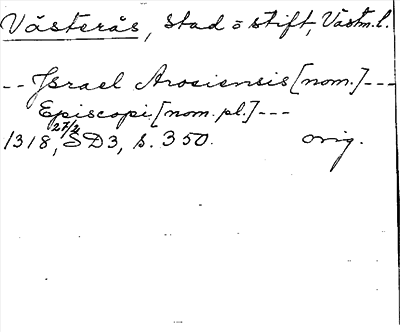 Västerås, stad o stift, Västm.l.
-- Israel Arosiensis [nom.] ---
Episcopi [nom. pl.] ---
1318, 27/2, SD3, s. 350. orig.